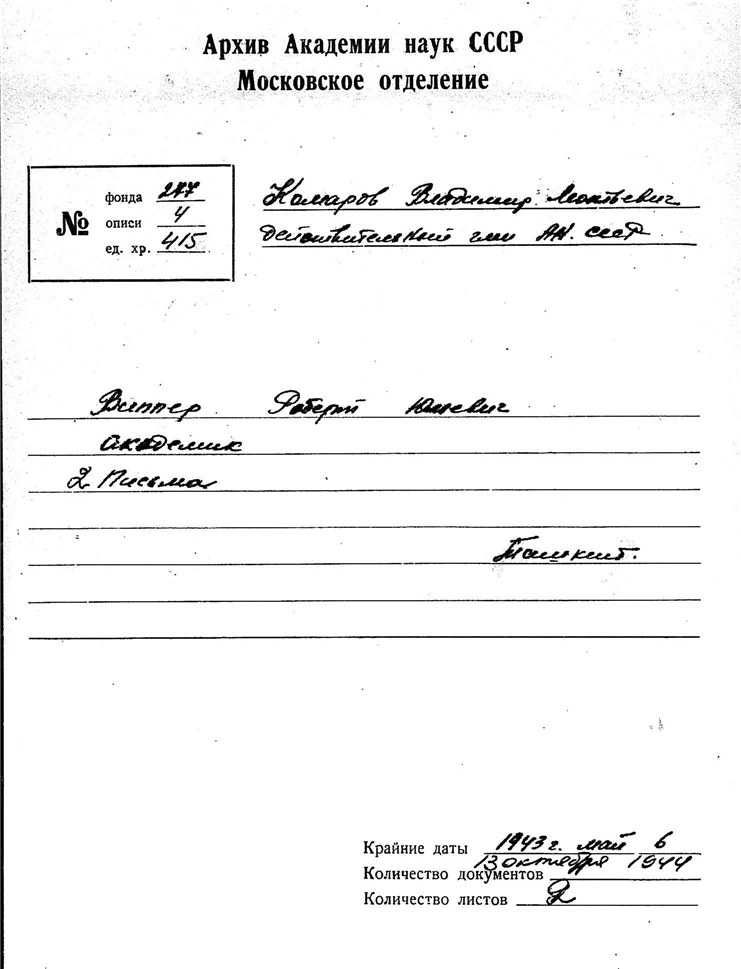 Архив Академии наук СССР
Московское отделение
№
фонда 277
описи 4
ед. хр. 415
Комаров Владимир Леонтьевич
действительный член АН. СССР
Виппер Роберт Юльевич
академик
2 Письма
Ташкент.
Крайние даты 1943 г. май 6
13 октября 1944
Количество документов
Количество листов 2